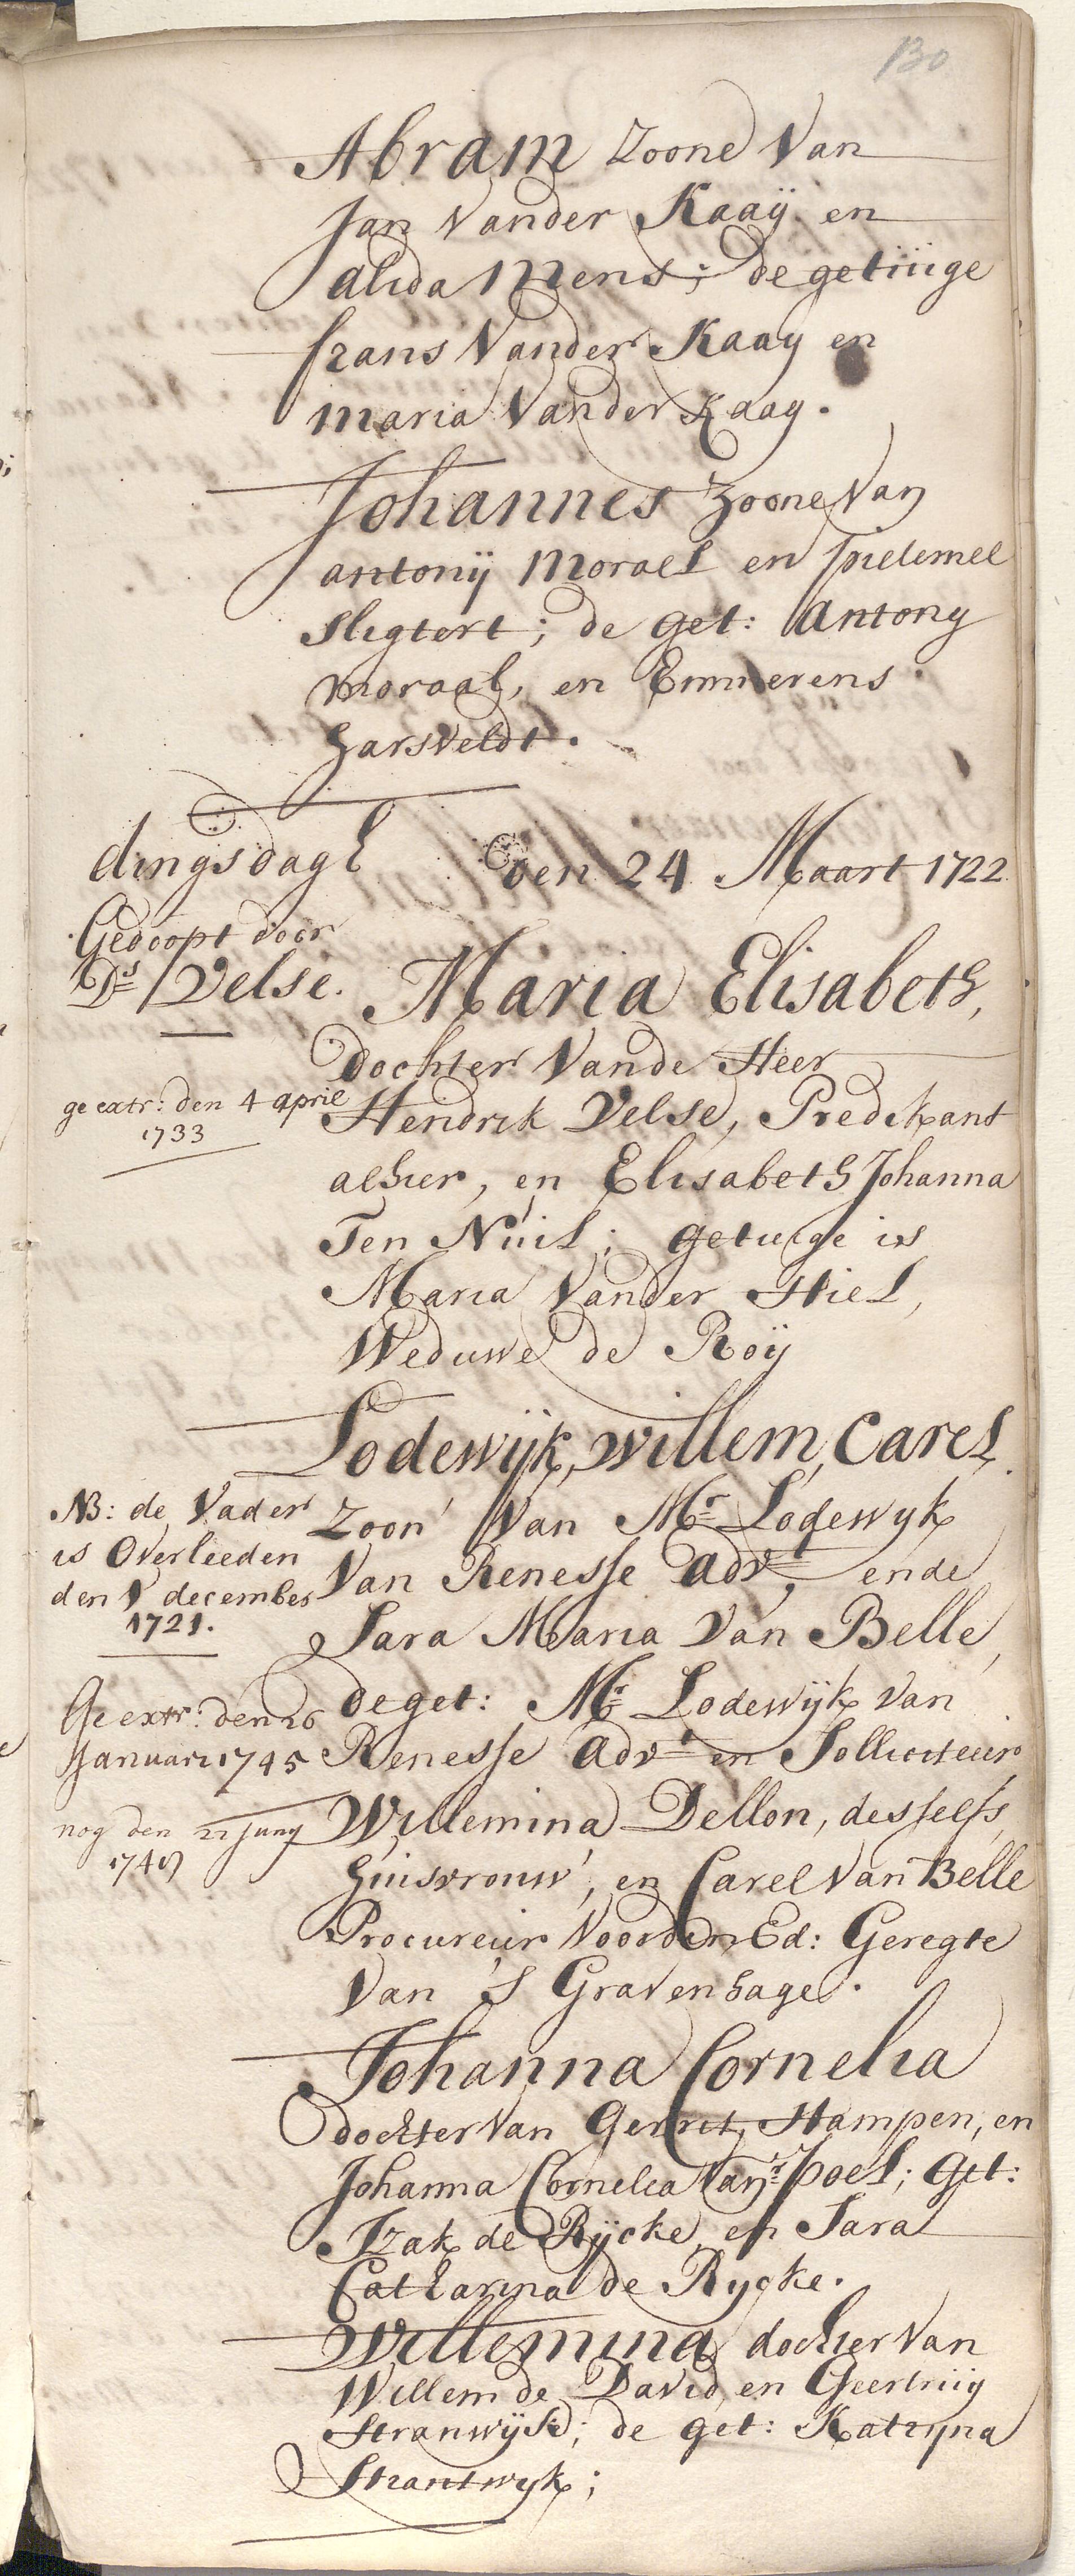 130
Abram Zoone Van
Jan Vander Kaaij en
alida Mens; de getuige
frans Vander Kaay en
maria Vander Kaay.
Johannes Zoone Van
antonij Morael en
Sligtert; de get: Antony
moraal, en Emmerens
Harsveldt.
dingsdagh den 24 Maart 1722
Gedoopt door
Ds Velse.
Maria Elisabeth,
Dochter Vande Heer
ge extr: den 4 april
1733
Hendrik Velse, Predikant
alhier, en Elisabeth Johanna
Ten Nuil; getuige is
Maria Vander Hiel,
Weduwe de Roij
Lodewijk, willem, Carel
NB: de Vader
is Overleeden
den V december
1721.
Zoon Van Mr Lodewyk
Van Renesse Advt, ende
Sara Maria Van Belle,
de get: Mr Lodewijk Van
Ge extr: den 26
Januari 1745
nog den 22 Juny
1747
Renesse Advt en Solliciteur,
Willemina Dellon, desselfs
huisvrouw, en Carel Van Belle
Procureur Voorden Ed: Geregte
Van 'S Gravenhage.
Johanna Cornelia
dochter Van Gerrit Stampen, en
Johanna Cornelia Vanr Poel; Get:
Izak de Rijcke en Sara
Catharina de Rycke.
Willemina dochter Van
Willem de David en Geertruij
Stranwijk; de get: Katryna
Strantwyk;